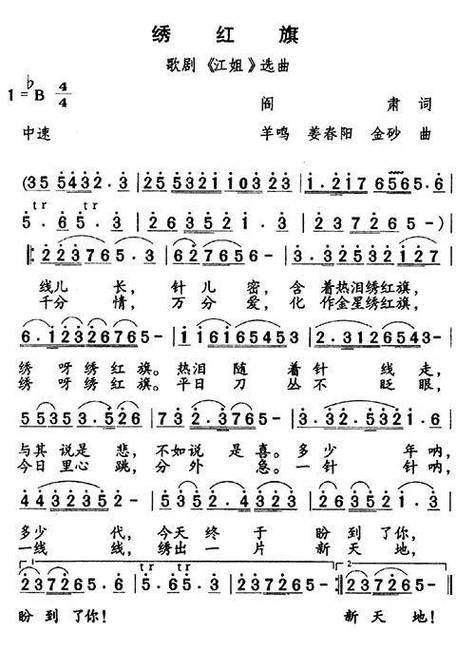 绣 红 旗
歌剧《江姐》选曲
1=♭B 4/4
阎 肃 词
中速
羊鸣 姜春阳 金砂 曲
(35 5432.3 | 25 532 1103 23 | 1.217 6565.6 |
5.65.3 | 26352 1 | 237265 - ) |
223765.3 | 627665 - | 3.32532 127 |
线儿 长, 针儿 密, 含 着热泪绣红旗,
千分 情, 万分 爱, 化 作金星绣红旗,
6.12327665 - | 11616 5453 | 2.3126543 - |
绣 呀绣红旗。热泪 随 着针 线走,
绣 呀绣红旗。平日 刀 丛不 眨眼,
5535 3.526 | 7232.3765 - | 3.332.5321.6 |
与其 说是 悲, 不如说 是喜。多少 年呐,
今日 里心 跳, 分 外 急。一针 针呐,
44323 52 - | 5352.4323 | 26352 1.3 |
多少 代, 今天 终 于 盼 到了你,
一线 线, 绣出 一 片 新天 地,
1 2
237265. | 5.65.3 | 237265 -
tr tr
盼 到 了你! 新天 地!